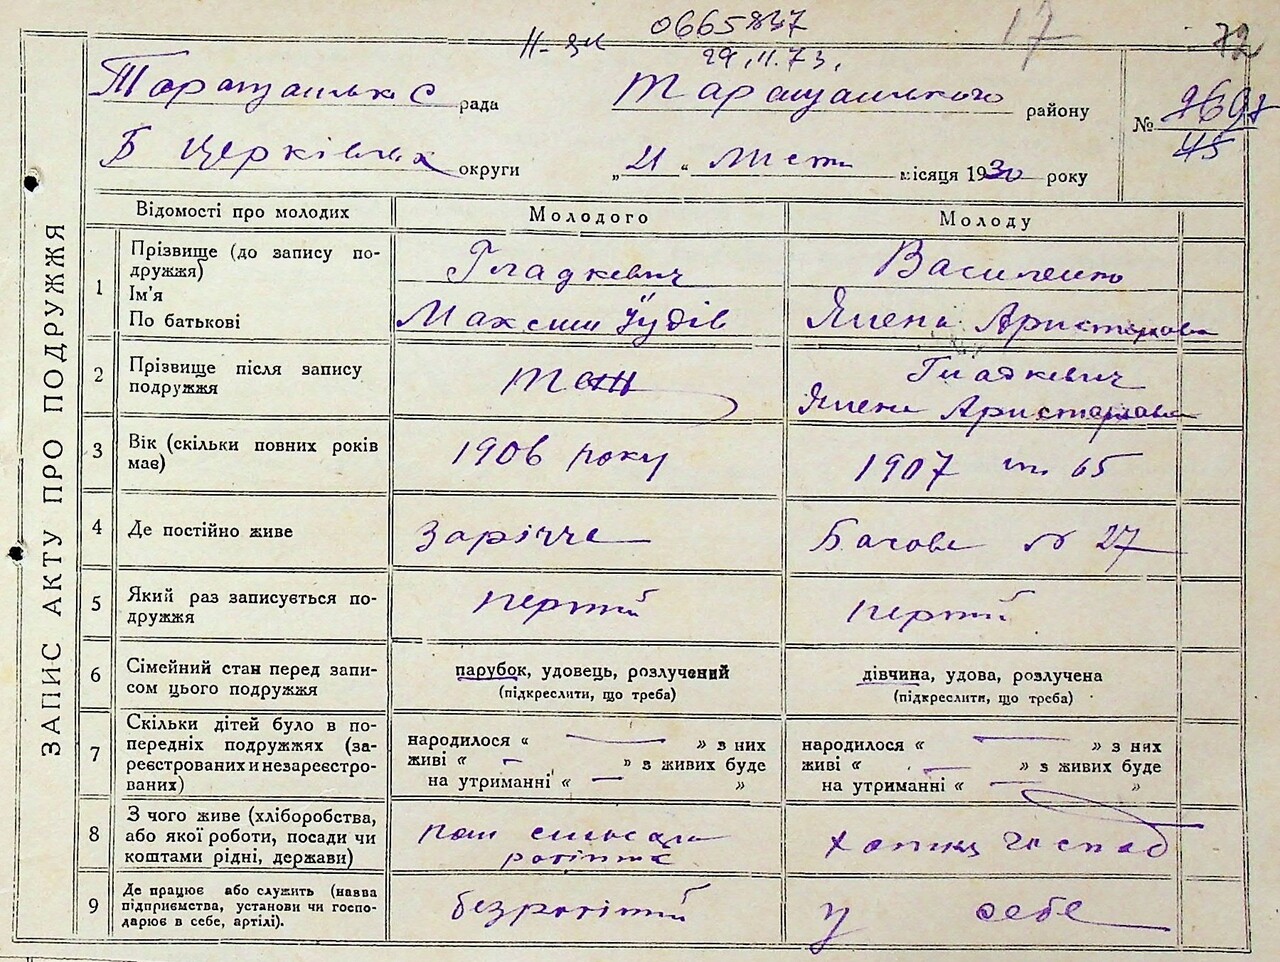 0665837
17
72
29.11.73.
рада
Таращанського району
№
Б Церківська округи
„21“ Лист місяця 1930 року
45
ЗАПИС АКТУ ПРО ПОДРУЖЖЯ
Відомості про молодих
Молодого
Молоду
1
Прізвище (до запису по-
дружжя)
Ім'я
По батькові
Гладкевич
Максим Іудів
Василенко
Ямена Аристархова
2
Прізвище після запису
подружжя
теж
Гладкевич
Ямена Аристархова
3
Вік (скільки повних років
має)
1906 року
1907
4
Де постійно живе
Заріччє
№ 27
5
Який раз записується по-
дружжя
перший
перший
6
Сімейний стан перед запи-
сом цього подружжя
парубок, удовець, розлучений
(підкреслити, що треба)
дівчина, удова, розлучена
(підкреслити, що треба)
7
Скільки дітей було в по-
передніх подружжях (за-
реєстрованих и незареєстро-
ваних)
народилося « — » з них
живі « — » з живих буде
на утриманні « — »
народилося « — » з них
живі « — » з живих буде
на утриманні « — »
8
З чого живе (хліборобства,
або якої роботи, посади чи
коштами рідні, держави)
робітник
9
Де працює або служить (назва
підприємства, установи чи господа-
рює в себе, артілі).
безробітний
у себе